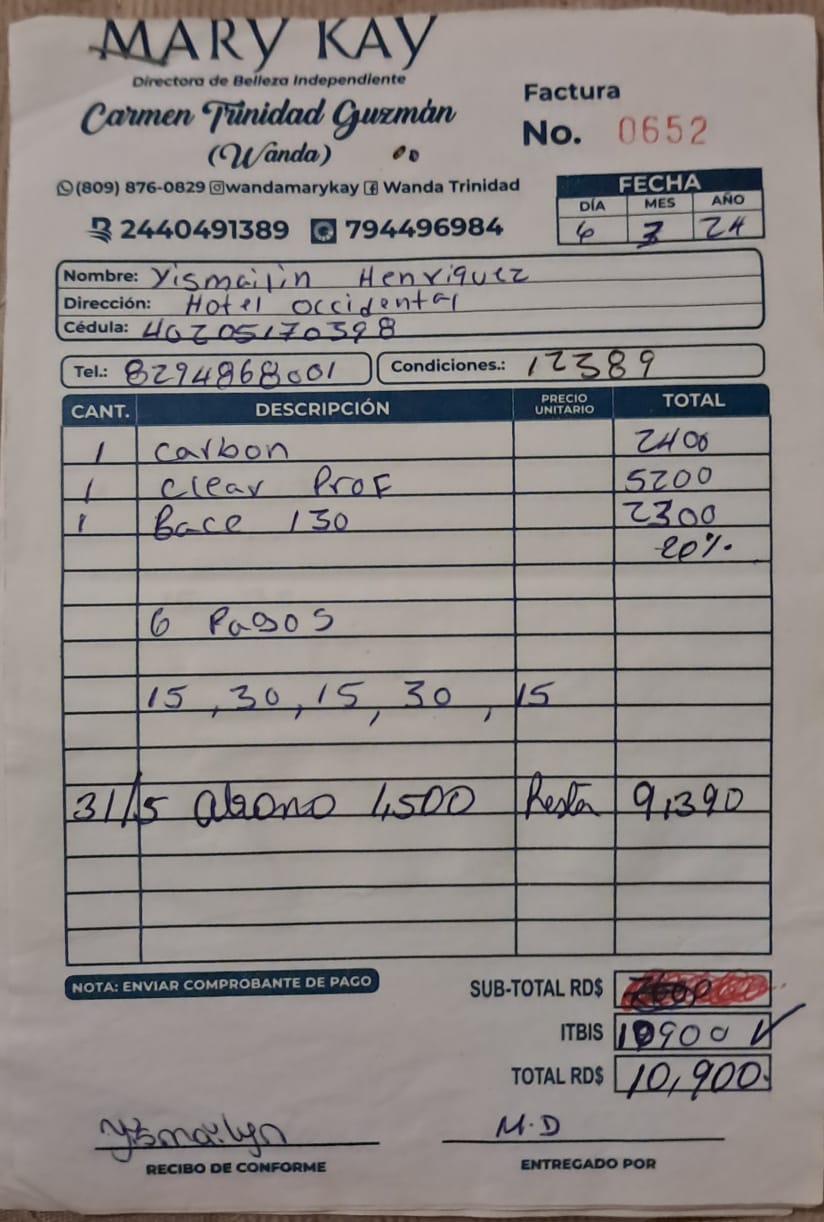 MARY KAY
Directora de Belleza Independiente
Carmen Trinidad Guzmán
(Wanda)
Factura
No. 0652
(809) 876-0829 wandamarykay Wanda Trinidad
2440491389 794496984
FECHA
DÍA MES AÑO
6 3 24
Nombre: Yismailin Henriquez
Dirección: Hotel occidental
Cédula: 40205170398
Tel.: 8294868001 Condiciones.: 12389
CANT. DESCRIPCIÓN PRECIO UNITARIO TOTAL
1 carbon 2400
1 clear Prof 5200
1 Bace 130 2300
20%
6 Pagos
15, 30, 15, 30, 15
31/5 abono 1,500 Resta 9,390
NOTA: ENVIAR COMPROBANTE DE PAGO
SUB-TOTAL RD$
ITBIS 10900
TOTAL RD$ 10,900
Yismailyn M.D
RECIBO DE CONFORME ENTREGADO POR